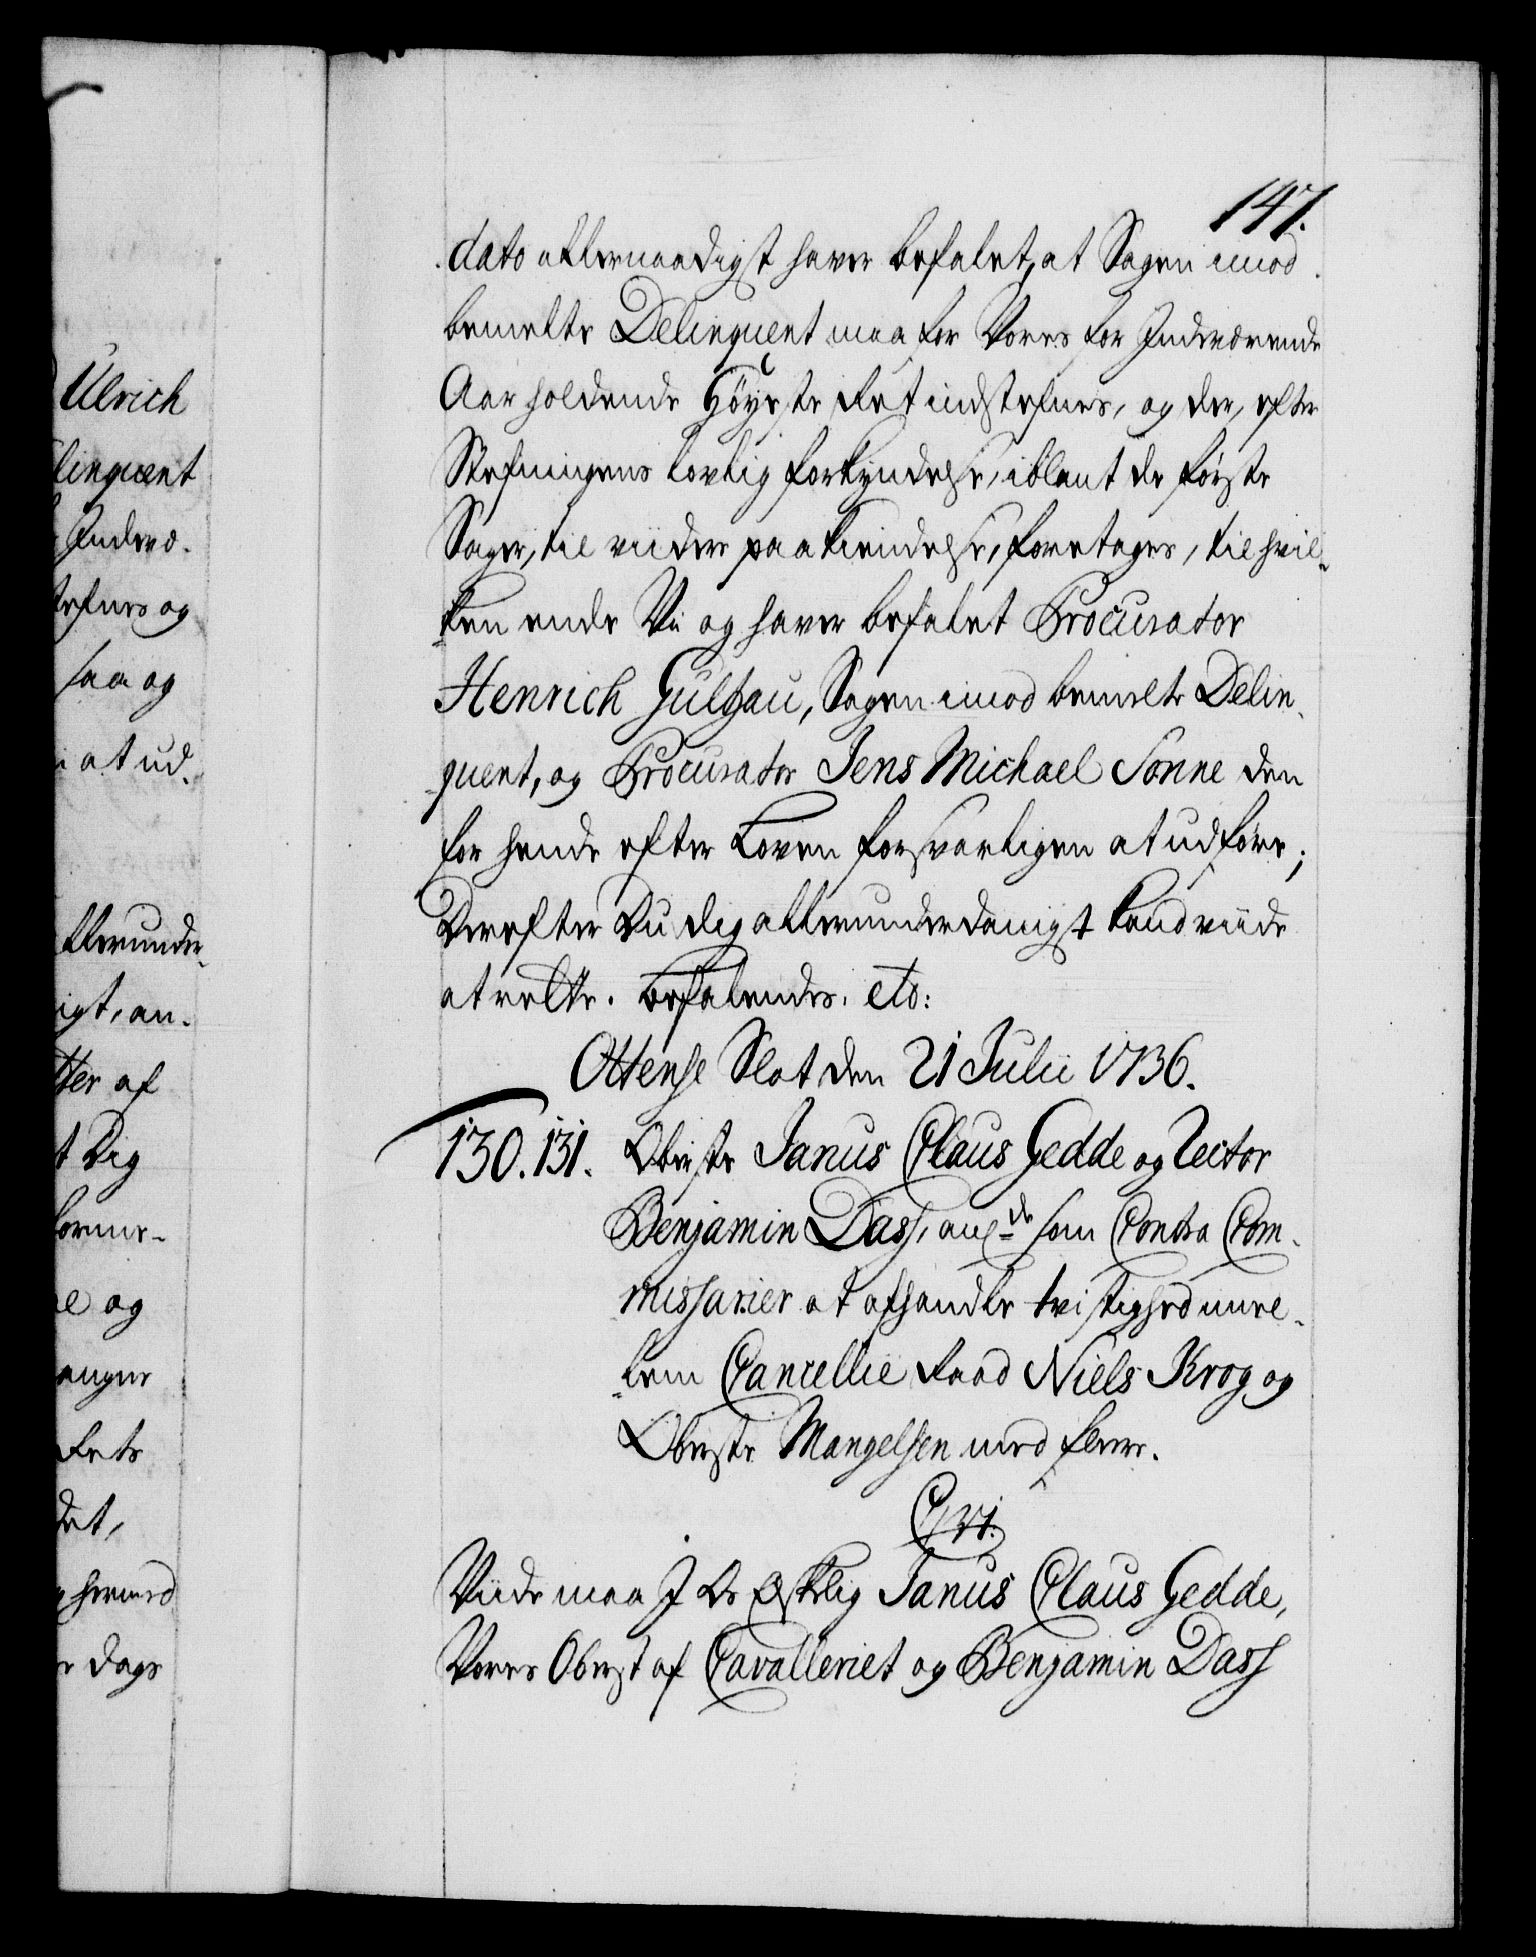 147.
dato allernaadigst haver befalet, at Sagen imod
bemelte Delinquent maa for Vores for Indeværende
Aar holdende Höyeste Ret indstefnes, og der, efter
Stefningens lovlig forkyndelse, iblant de første
Sager, til viidere paakiendelse, foretages, til hvil-
ken ende Vii og haver befalet Procurator
Henrich Gultzau, Sagen imod bemelte Delin-
quent, og Procurator Jens Michael Sonne den
for hende efter Loven forsvarligen at udføre;
Derefter du dig allerunderdanigst kand viide
at rette. befalendes. etc:
Ottense Slot den 21 Julii 1736.
130. 131. Oberste Janus Claus Gedde og Rector
Benjamin Dass, an(= de som Contra Com-
missarier at afhandle tvistighed imel-
lem Cancellie Raad Niels Krog og
Oberste Mangelsen med flere.
C, VI.
Viide maa I Os Elskelig Janus Claus Gedde,
Vores Oberst af Cavalleriet og Benjamin Dass
Ulrich
linquent
Indevæ-
tefnes og
saa og
at ud-
llerunder-
igt, an-
tter af
t Dig
og
anger
Rets
det,
hermed
dags